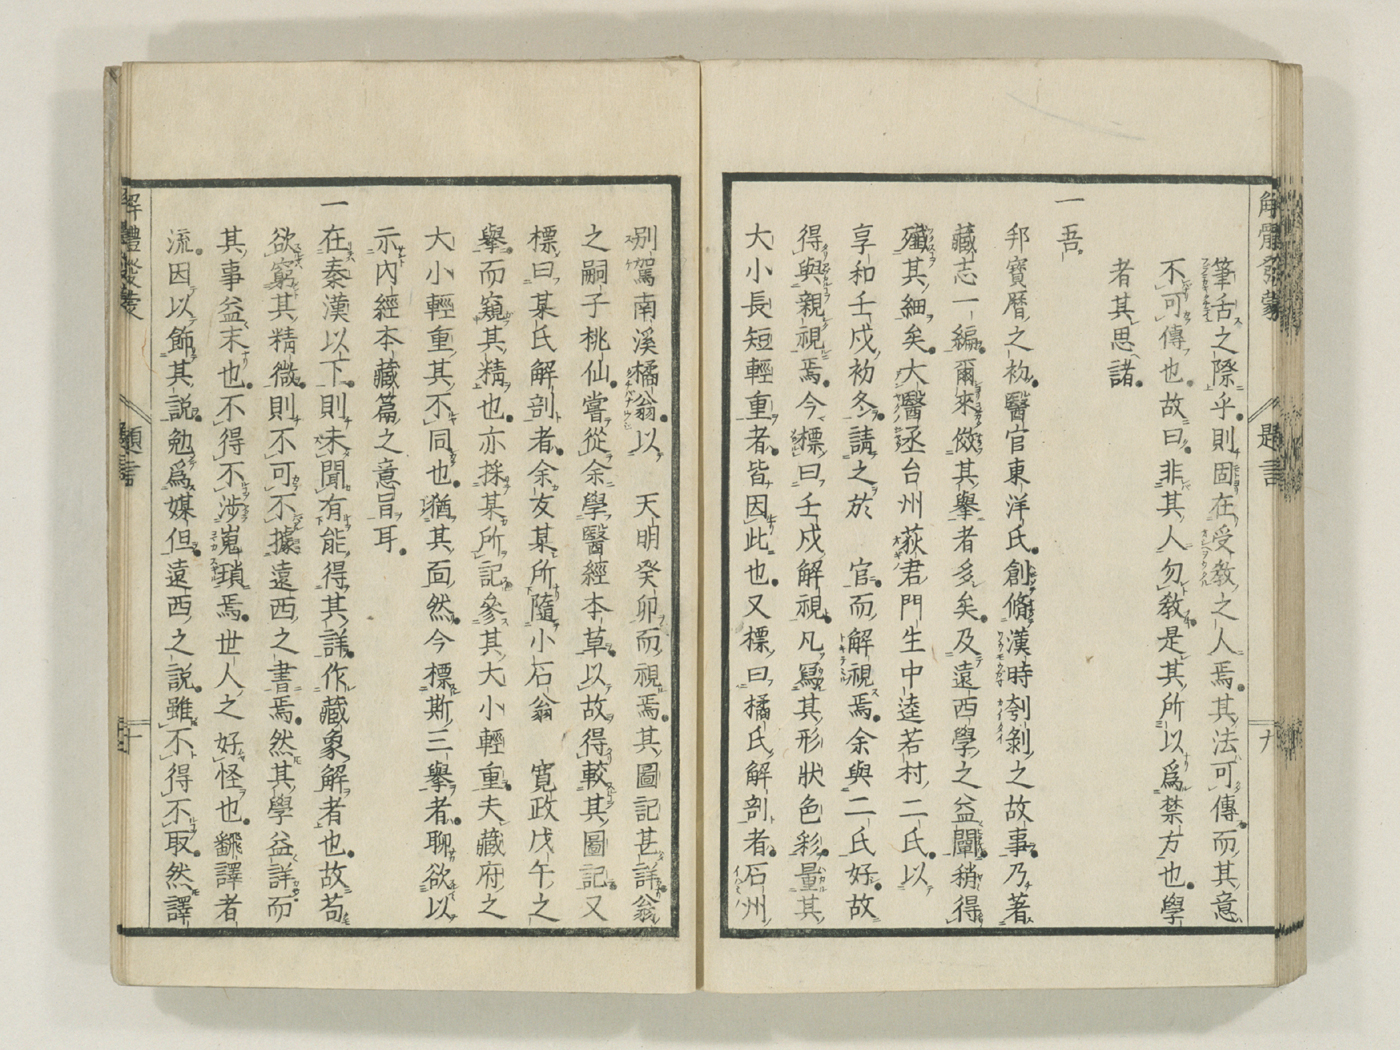 解體發蒙 題言 九
筆舌之際乎則固在受敎之人焉其法可傳而其意
不可傳也故曰非其人勿敎是其所以爲禁方也學
者其思諸
一吾
邦寶曆之初醫官東洋氏創脩漢時刳剝之故事乃著
藏志一編爾來傚其擧者多矣及遠西學之益闢稍得
殲其細矣大醫丞台州荻君門生中逵若村二氏以
享和壬戍初冬請之於 官而解視焉余與二氏好故
得與親視焉今標曰壬戍解視凡爲其形狀色彩量其
大小長短輕重者皆因此也又標曰橘氏解剖者石州
別駕南溪橘翁以 天明癸卯而視焉其圖記甚詳翁
之嗣子桃仙嘗從余學醫經本草以故得較其圖記又
標曰某氏解剖者余友某所隨小石翁 寬政戊午之
擧而窺其精也亦採某所記參其大小輕重夫藏府之
大小輕重其不同也猶其面然今標斯三擧者聊欲以
示內經本藏篇之意旨耳
一在秦漢以下則未聞有能得其詳作藏象解者也故苟
欲窮其精微則不可不據遠西之書焉然其學益詳而
其事益末也不得不涉嵬瑣焉世人之好怪也飜譯者
流因以飾其說勉爲媒但遠西之說雖不得不取然譯
解體發蒙 題言 十